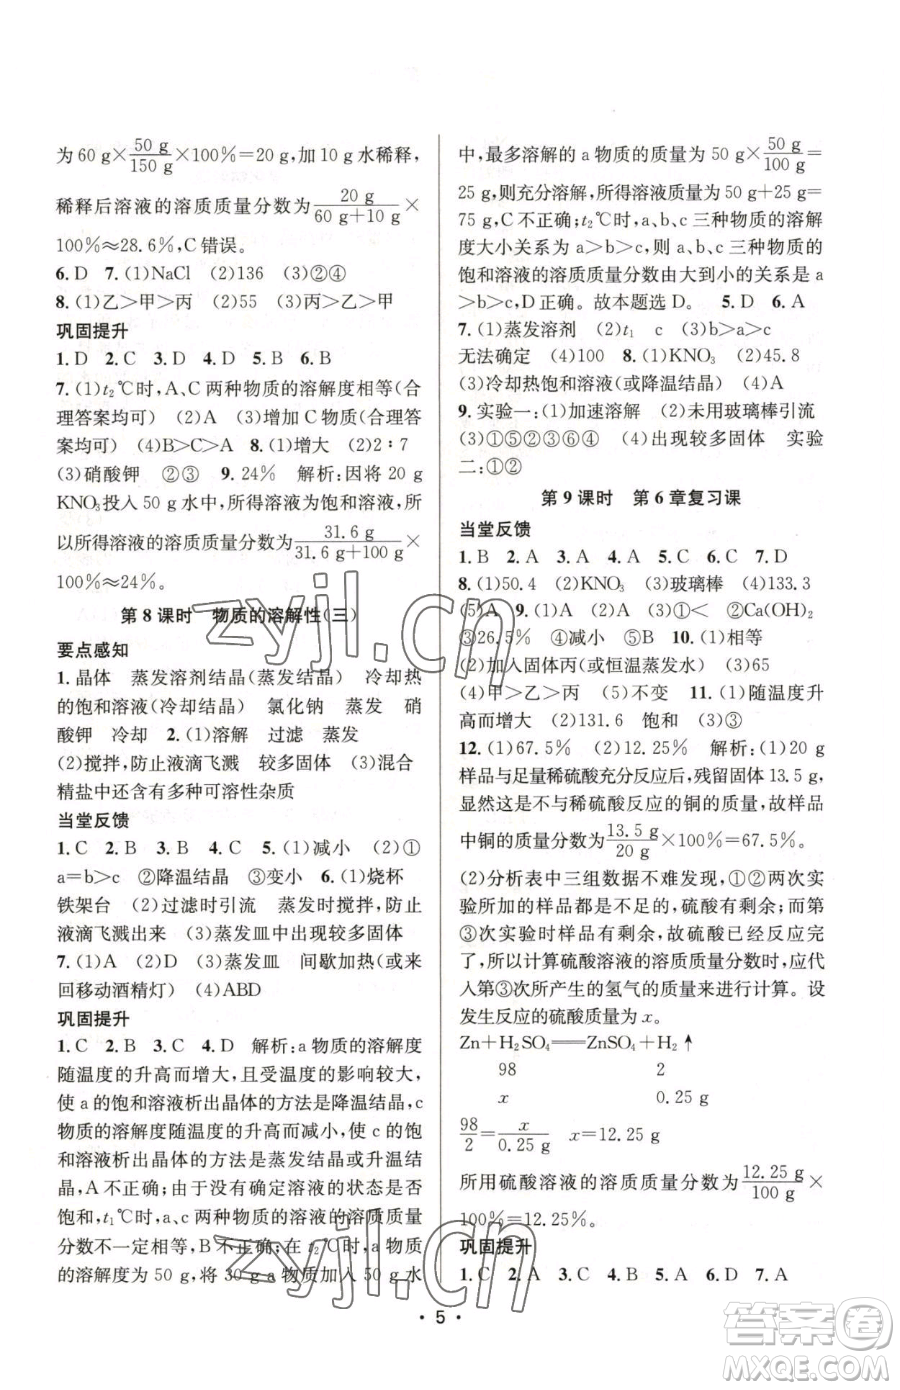 为 60 g×50 g/150 g×100%=20 g,加 10 g 水稀释,
稀释后溶液的溶质质量分数为20 g/(60 g+10 g)×
100%≈28.6%,C 错误。
6. D 7. (1)NaCl (2)136 (3)①②④
8. (1)乙>甲>丙 (2)55 (3)丙>乙>甲
巩固提升
1. D 2. C 3. D 4. D 5. B 6. B
7. (1)t₂℃时,A、C 两种物质的溶解度相等(合
理答案均可) (2)A (3)增加 C 物质(合理答
案均可) (4)B>C>A 8. (1)增大 (2)2∶7
(3)硝酸钾 ②③ 9. 24% 解析:因将 20 g
KNO₃投入 50 g 水中,所得溶液为饱和溶液,所
以所得溶液的溶质质量分数为31.6 g/(31.6 g+100 g)×
100%≈24%。
第 8 课时 物质的溶解性(三)
要点感知
1. 晶体 蒸发溶剂结晶(蒸发结晶) 冷却热
的饱和溶液(冷却结晶) 氯化钠 蒸发 硝
酸钾 冷却 2. (1)溶解 过滤 蒸发
(2)搅拌,防止液滴飞溅 较多固体 (3)混合
精盐中还含有多种可溶性杂质
当堂反馈
1. C 2. B 3. B 4. C 5. (1)减小 (2)①
a=b>c ②降温结晶 ③变小 6. (1)烧杯
铁架台 (2)过滤时引流 蒸发时搅拌,防止
液滴飞溅出来 (3)蒸发皿中出现较多固体
7. (1)A (2)D (3)蒸发皿 间歇加热(或来
回移动酒精灯) (4)ABD
巩固提升
1. C 2. B 3. C 4. D 解析:a 物质的溶解度
随温度的升高而增大,且受温度的影响较大,
使 a 的饱和溶液析出晶体的方法是降温结晶,c
物质的溶解度随温度的升高而减小,使 c 的饱
和溶液析出晶体的方法是蒸发结晶或升温结
晶,A 不正确;由于没有确定溶液的状态是否
饱和,t₁℃时,a、c 两种物质的溶液的溶质质量
分数不一定相等,B 不正确;在 t₂℃时,a 物质
的溶解度为 50 g,将 30 g a 物质加入 50 g 水
中,最多溶解的 a 物质的质量为 50 g×50 g/100 g=
25 g,则充分溶解,所得溶液质量为 50 g+25 g=
75 g,C 不正确;t₂℃时,a、b、c 三种物质的溶解
度大小关系为 a>b>c,则 a、b、c 三种物质的
饱和溶液的溶质质量分数由大到小的关系是 a
>b>c,D 正确。故本题选 D。 5. D 6. A
7. (1)蒸发溶剂 (2)t₁ c (3)b>a>c
无法确定 (4)100 8. (1)KNO₃ (2)45.8
(3)冷却热饱和溶液(或降温结晶) (4)A
9. 实验一:(1)加速溶解 (2)未用玻璃棒引流
(3)①⑤②③⑥④ (4)出现较多固体 实验
二:①②
第 9 课时 第 6 章复习课
当堂反馈
1. B 2. A 3. A 4. A 5. C 6. C 7. D
8. (1)50.4 (2)KNO₃ (3)玻璃棒 (4)133.3
(5)A 9. (1)A (2)A (3)①< ②Ca(OH)₂
③26.5% (4)减小 (5)B 10. (1)相等
(2)加入固体丙(或恒温蒸发水) (3)65
(4)甲>乙>丙 (5)不变 11. (1)随温度升
高而增大 (2)131.6 饱和 (3)③
12. (1)67.5% (2)12.25% 解析:(1)20 g
样品与足量稀硫酸充分反应后,残留固体 13.5 g,
显然这是不与稀硫酸反应的铜的质量,故样品
中铜的质量分数为13.5 g/20 g×100%=67.5%。
(2)分析表中三组数据不难发现,①②两次实
验所加的样品都是不足量的,硫酸有剩余;而第
③次实验时样品有剩余,故硫酸已经反应完
了,所以计算硫酸溶液的溶质质量分数时,应代
入第③次所产生的氢气的质量来进行计算。设
发生反应的硫酸质量为 x。
Zn+H₂SO₄══ZnSO₄+H₂↑
98 2
x 0.25 g
98/2=x/0.25 g x=12.25 g
所用硫酸溶液的溶质质量分数为12.25 g/100 g×
100%=12.25%。
巩固提升
1. C 2. A 3. C 4. A 5. A 6. D 7. A
· 5 ·
zyjl.cn
zyjl.cn
答案圈
MXQE.COM